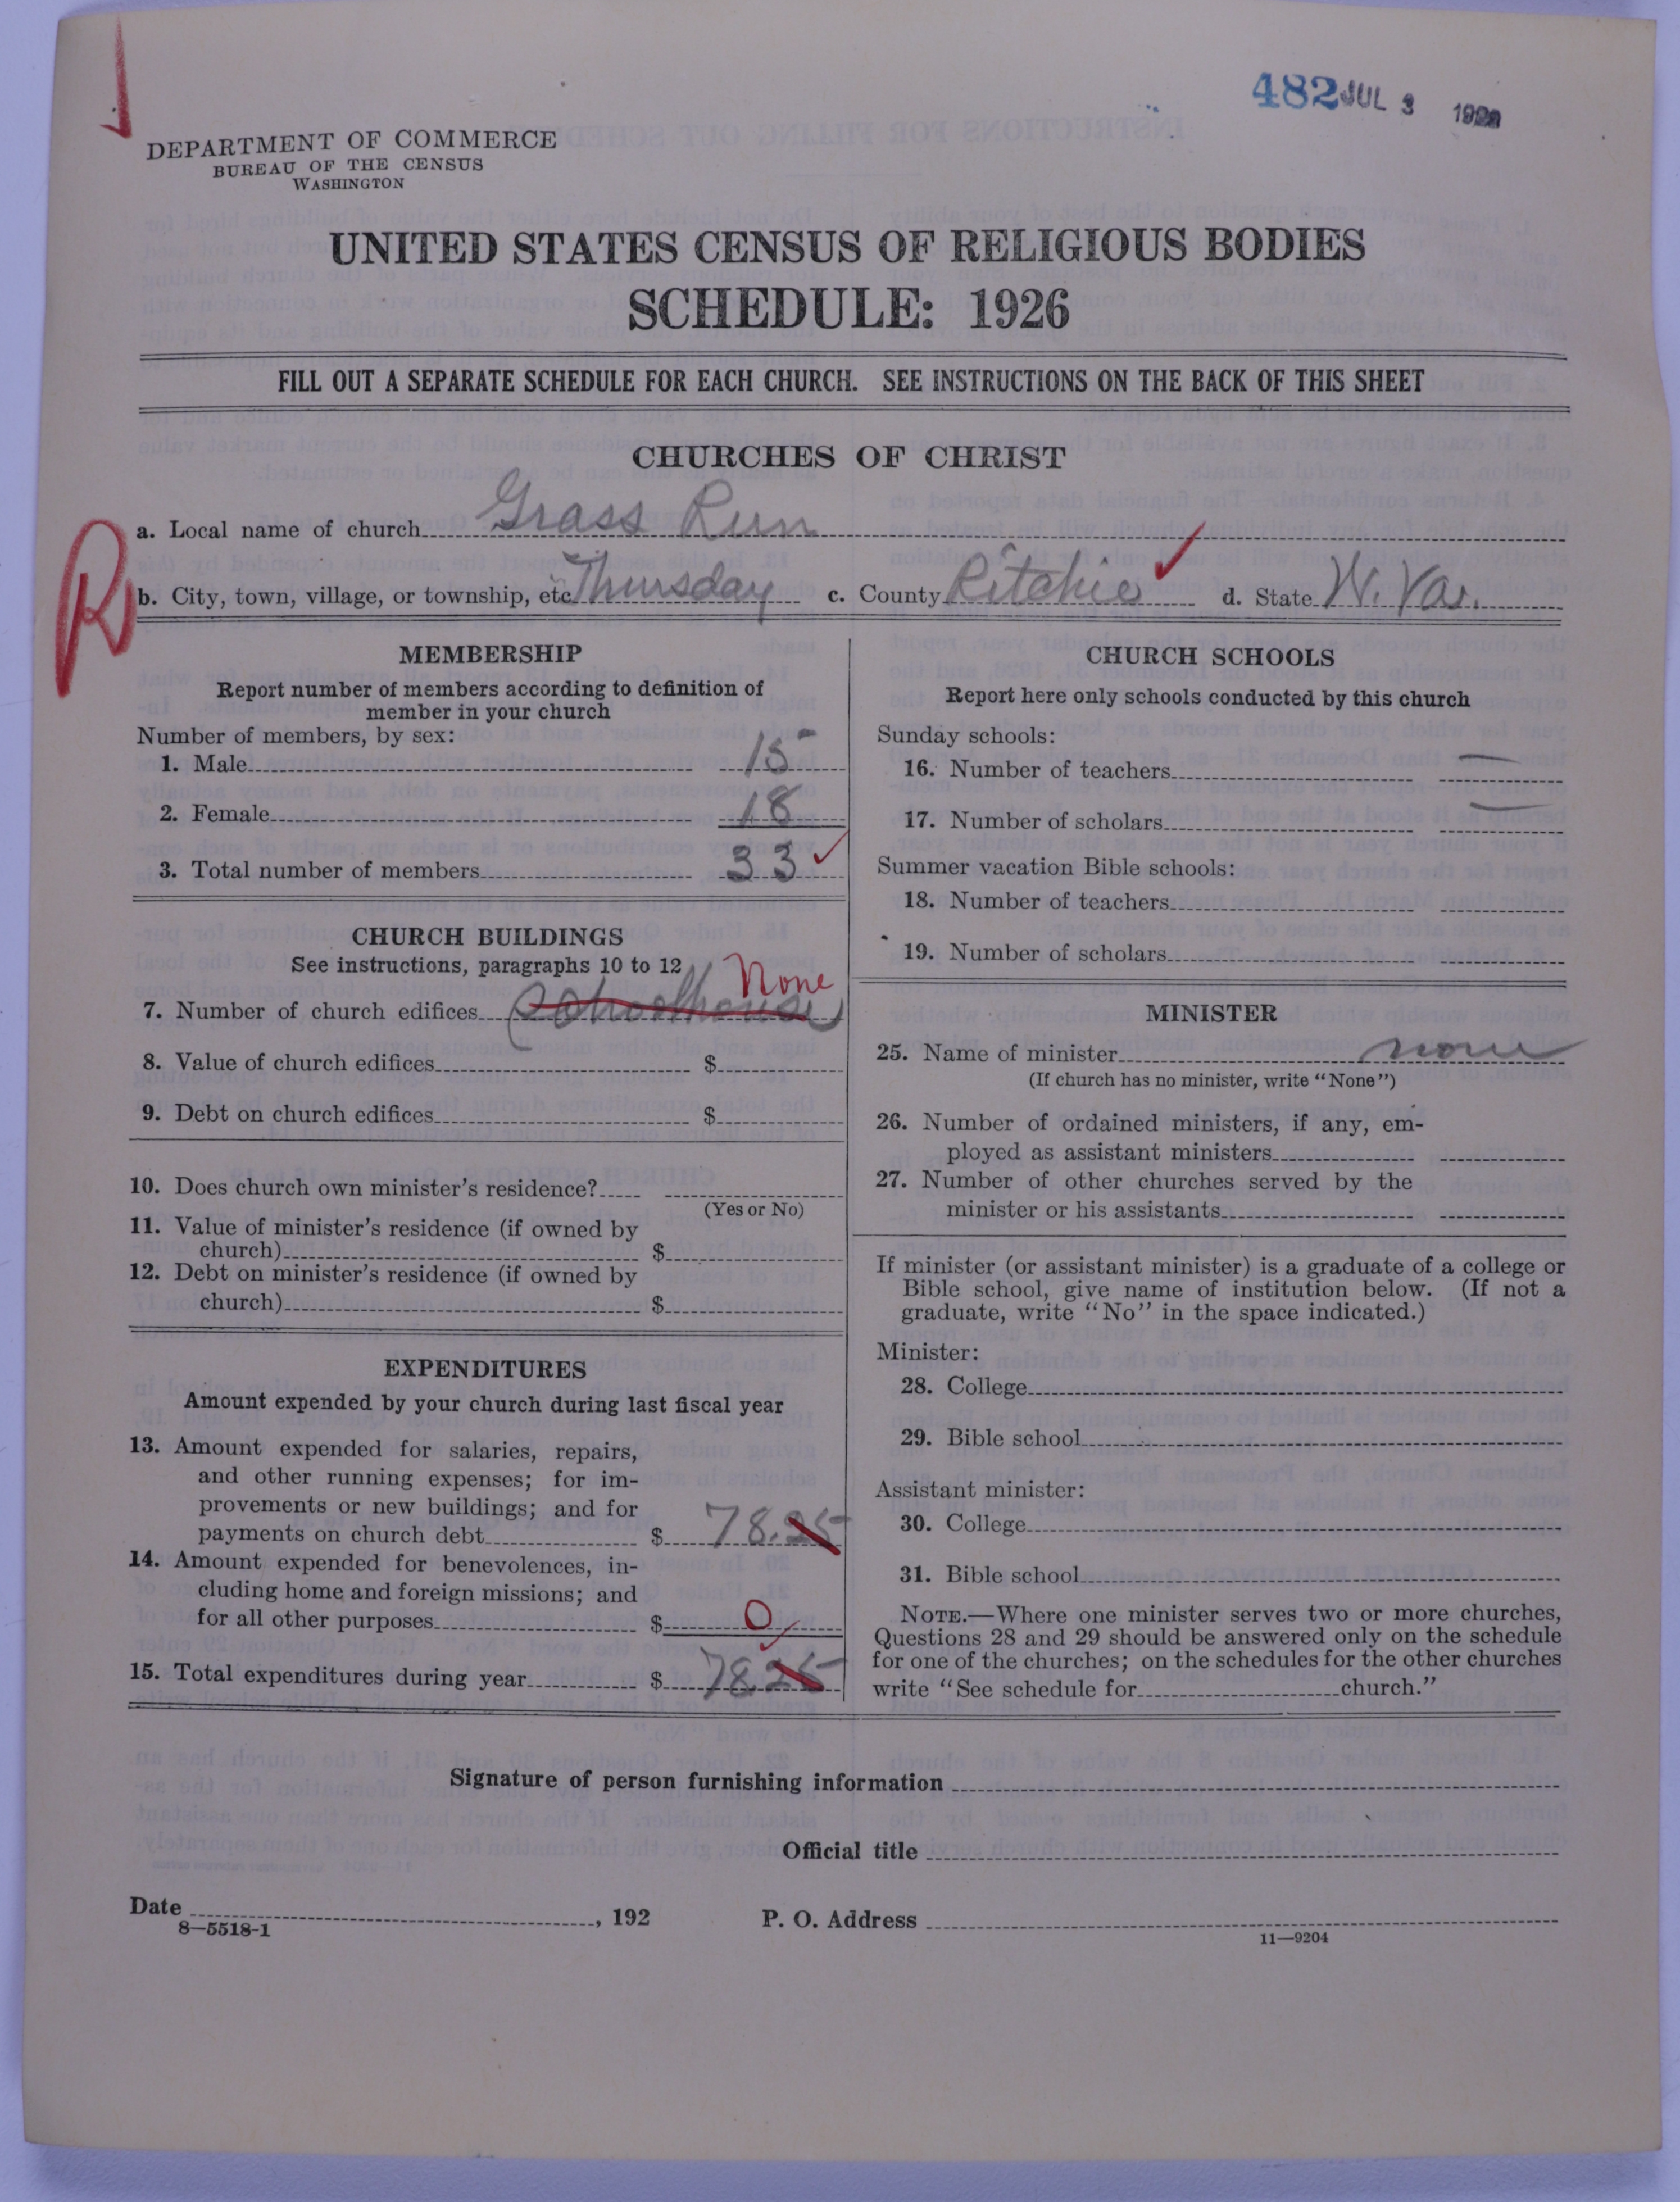 482 JUL 3 1928
DEPARTMENT OF COMMERCE
BUREAU OF THE CENSUS
WASHINGTON
UNITED STATES CENSUS OF RELIGIOUS BODIES
SCHEDULE: 1926
FILL OUT A SEPARATE SCHEDULE FOR EACH CHURCH. SEE INSTRUCTIONS ON THE BACK OF THIS SHEET
CHURCHES OF CHRIST
a. Local name of church Grass Run
R
b. City, town, village, or township, etc. Thursday c. County Ritchie d. State W. Va.
MEMBERSHIP
Report number of members according to definition of
member in your church
Number of members, by sex:
1. Male 15
2. Female 18
3. Total number of members 33
CHURCH BUILDINGS
See instructions, paragraphs 10 to 12
None
7. Number of church edifices (Schoolhouse)
8. Value of church edifices $
9. Debt on church edifices $
10. Does church own minister's residence?
(Yes or No)
11. Value of minister's residence (if owned by
church) $
12. Debt on minister's residence (if owned by
church) $
EXPENDITURES
Amount expended by your church during last fiscal year
13. Amount expended for salaries, repairs,
and other running expenses; for im-
provements or new buildings; and for
payments on church debt $ 78.25
14. Amount expended for benevolences, in-
cluding home and foreign missions; and
for all other purposes $ 0
15. Total expenditures during year $ 78.25
CHURCH SCHOOLS
Report here only schools conducted by this church
Sunday schools:
16. Number of teachers —
17. Number of scholars —
Summer vacation Bible schools:
18. Number of teachers
19. Number of scholars
MINISTER
25. Name of minister none
(If church has no minister, write "None")
26. Number of ordained ministers, if any, em-
ployed as assistant ministers
27. Number of other churches served by the
minister or his assistants
If minister (or assistant minister) is a graduate of a college or
Bible school, give name of institution below. (If not a
graduate, write "No" in the space indicated.)
Minister:
28. College
29. Bible school
Assistant minister:
30. College
31. Bible school
NOTE.—Where one minister serves two or more churches,
Questions 28 and 29 should be answered only on the schedule
for one of the churches; on the schedules for the other churches
write "See schedule for church."
Signature of person furnishing information
Official title
Date , 192 P. O. Address
8—5518-1
11—9204